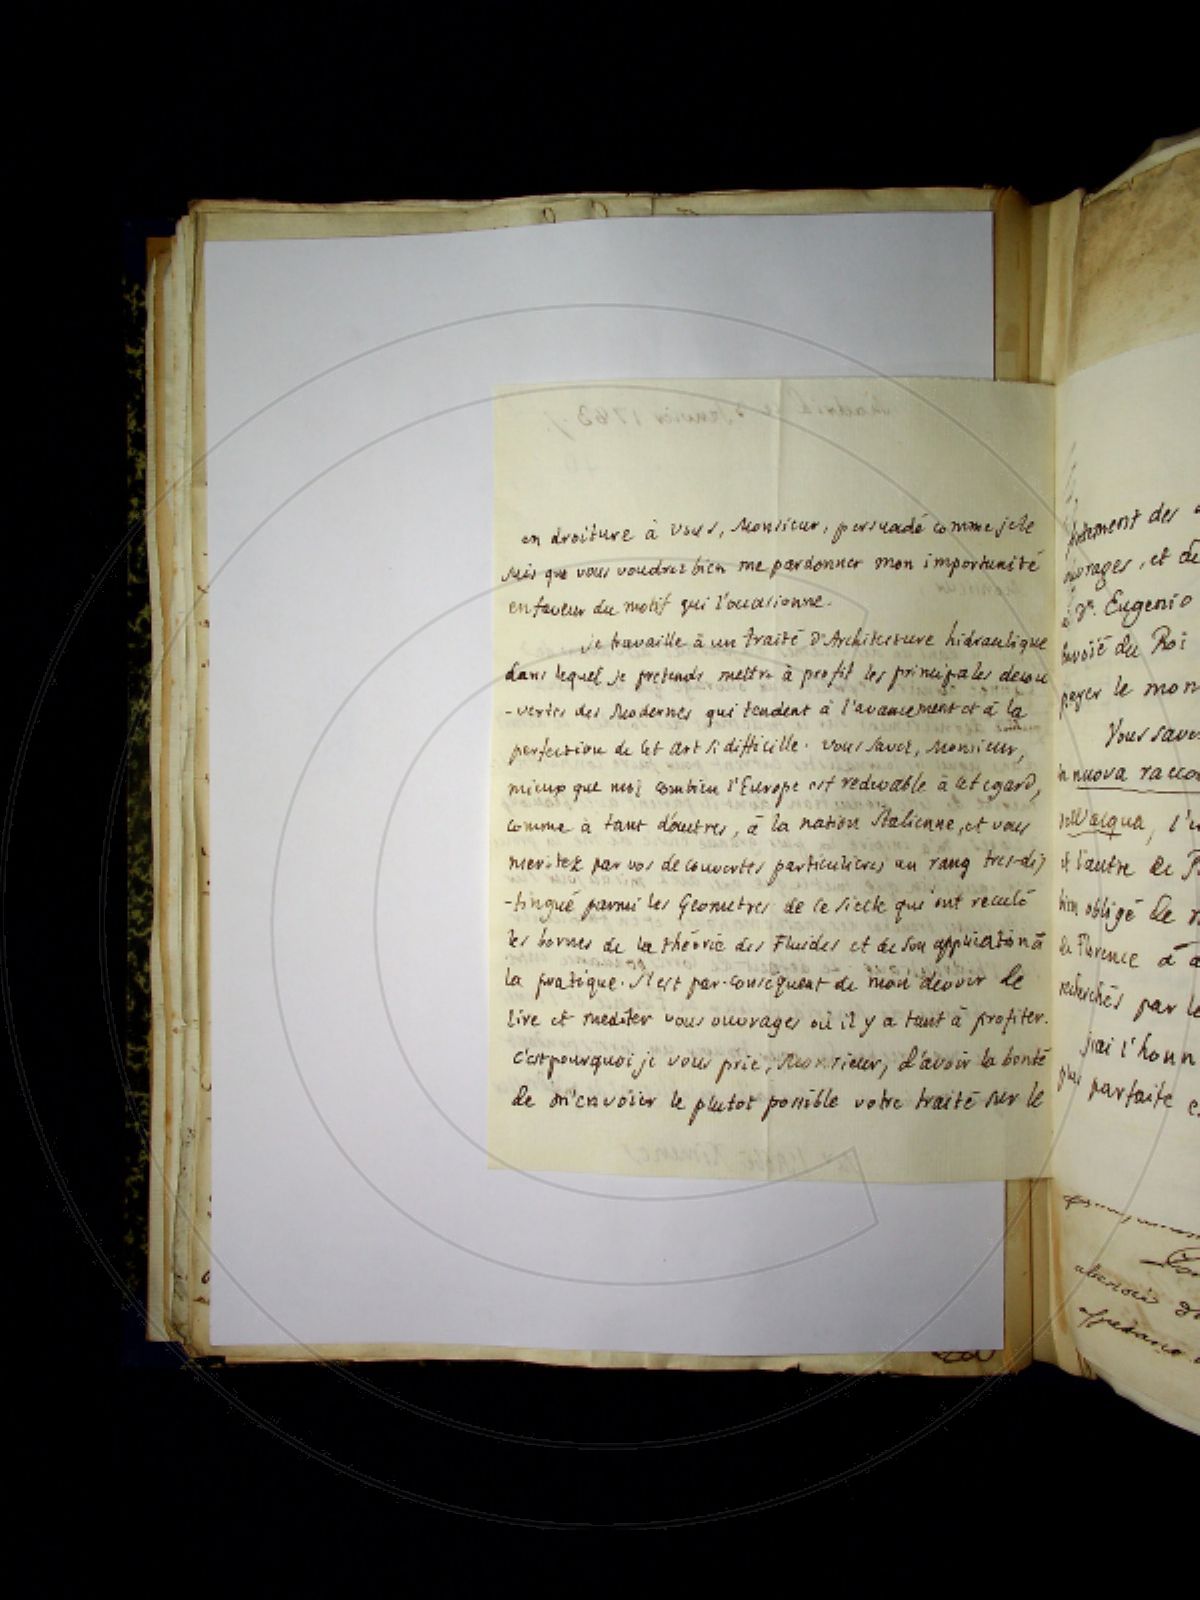 en droiture à vous, Monsieur, persuadé comme je le
suis que vous voudrez bien me pardonner mon importunité
en faveur du motif qui l'occasionne.
Je travaille à un traité d'Architecture hidraulique
dans lequel je pretends mettre à profit les principales decou
-vertes des Modernes qui tendent à l'avancement et à la
perfection de cet art si difficille. Vous savez, Monsieur,
mieux que moi combien l'Europe est redevable à cet egard,
comme à tant d'autres, à la nation Italienne, et vous
meritez par vos decouvertes particulieres un rang tres-dis
-tingué parmi les Geometres de ce siecle qui ont reculé
les bornes de la théorie des Fluides et de son application à
la pratique. Il est par-consequent de mon devoir de
lire et mediter vous ouvrages où il y a tant à profiter.
C'est pourquoi je vous prie, Monsieur, d'avoir la bonté
de m'envoïer le plutot possible votre traité sur le
des
ouvrages, et de
Eugenio
du Roi
payer le mon
Vous savez
nuova racco
dell'acqua, l'u
et l'autre de P
bien obligé de
de Florence à
recherchés par le
j'ai l'honn
plus parfaite e